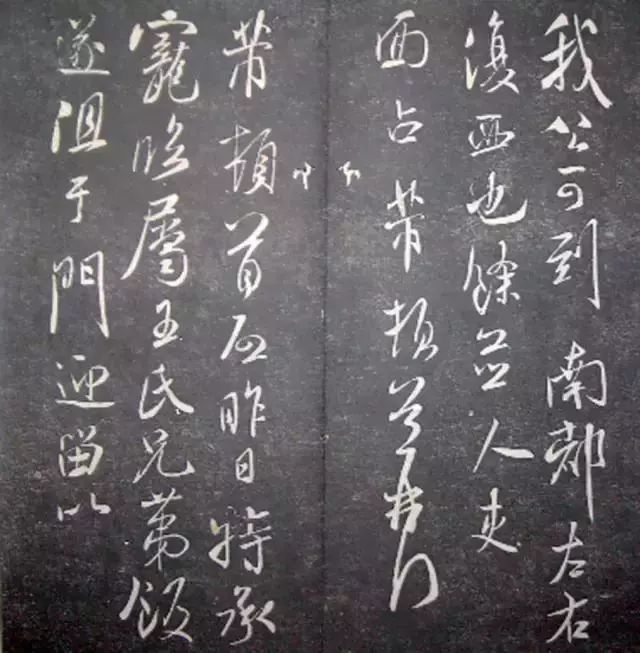 我公可到 南都左右
復西也餘並人吏
面占芾頓首
芾頓首啟昨日特承
寵臨屬王氏兄弟飯
遂阻于門迎留以